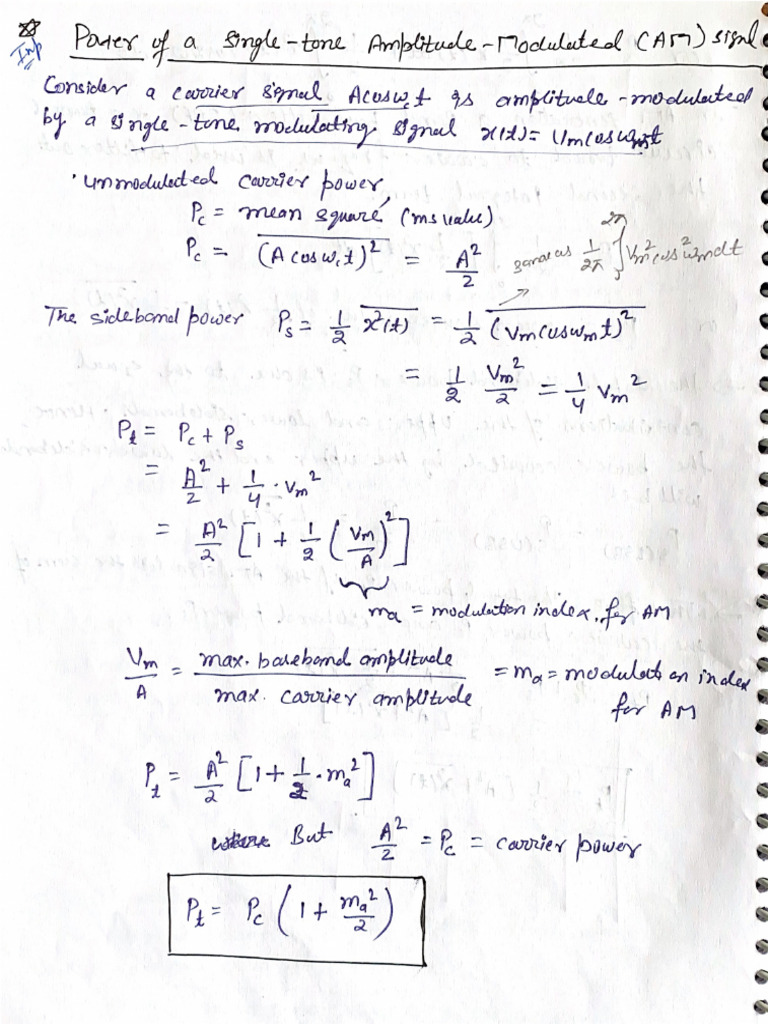 Imp
Power of a single-tone Amplitude-Modulated (AM) signal
Consider a carrier signal Acosω_c t is amplitude-modulated
by a single-tone modulating signal x(t) = Vm cosω_m t
· unmodulated carrier power
P_c = mean square (ms value)
P_c = \overline{(A cosω_c t)^2} = A²/2 same as 1/2π ∫^{2π} V_m² cos² ω_m dt
The sideband power P_s = 1/2 \overline{x²(t)} = 1/2 \overline{(V_m cosω_m t)^2}
= 1/2 V_m²/2 = 1/4 V_m²
P_t = P_c + P_s
= A²/2 + 1/4 · V_m²
= A²/2 [1 + 1/2 (V_m/A)²]
m_a = modulation index, for AM
V_m/A = max. baseband amplitude / max. carrier amplitude = m_a = modulation index
for AM
P_t = A²/2 [1 + 1/2 · m_a²]
But A²/2 = P_c = carrier power
P_t = P_c (1 + m_a²/2)